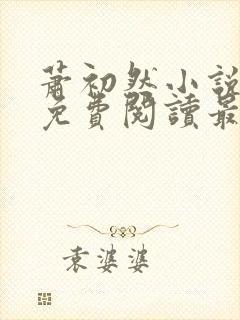 蕭初然小說
免費閱讀最
袁婆婆